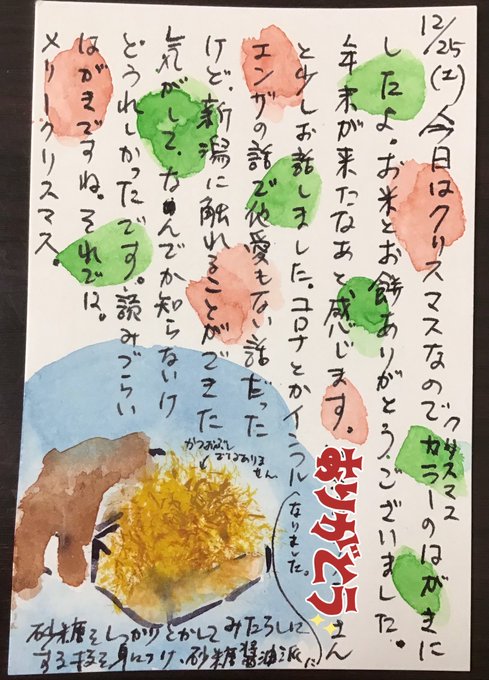 12/25(土)今日はクリスマスなのでクリスマスカラーのはがきに
したよ。お米とお餅ありがとうございました。
年末が来たなあと感じます。
さん
と少しお話しました。コロナとかインフル
エンザの話で他愛もない話だった
けど、新潟に触れることができた
気がして、なんでか知らないけ
どうれしかったです。読みづらい
はがきですね。それでは。
メリークリスマス。
ありがとう
かつおぶし
ではありま
せん
砂糖をしっかりとかしてみたらしに
する技を身につけ、砂糖醤油派に
なりました。